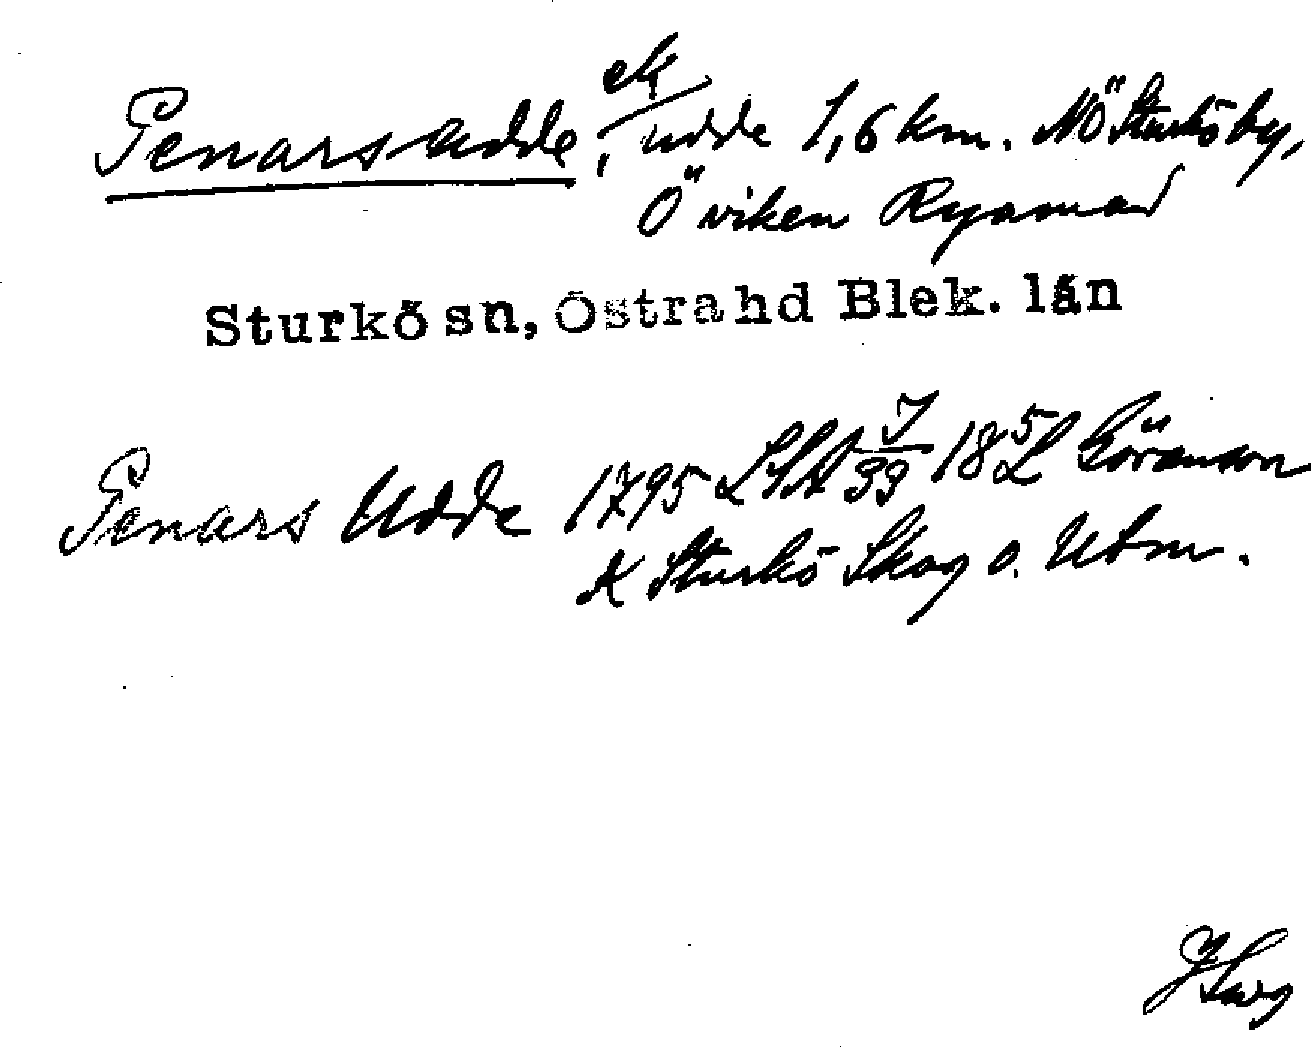 Penarsudde, ek/ udde 1,6 km. NÖ Sturkö by,
Ö viken Ryamad
Sturkö sn, Östra hd Blek. län
Penars Udde 1795 LSA J/33 18 5/L Göransson
X Sturkö Skog o. Utm.